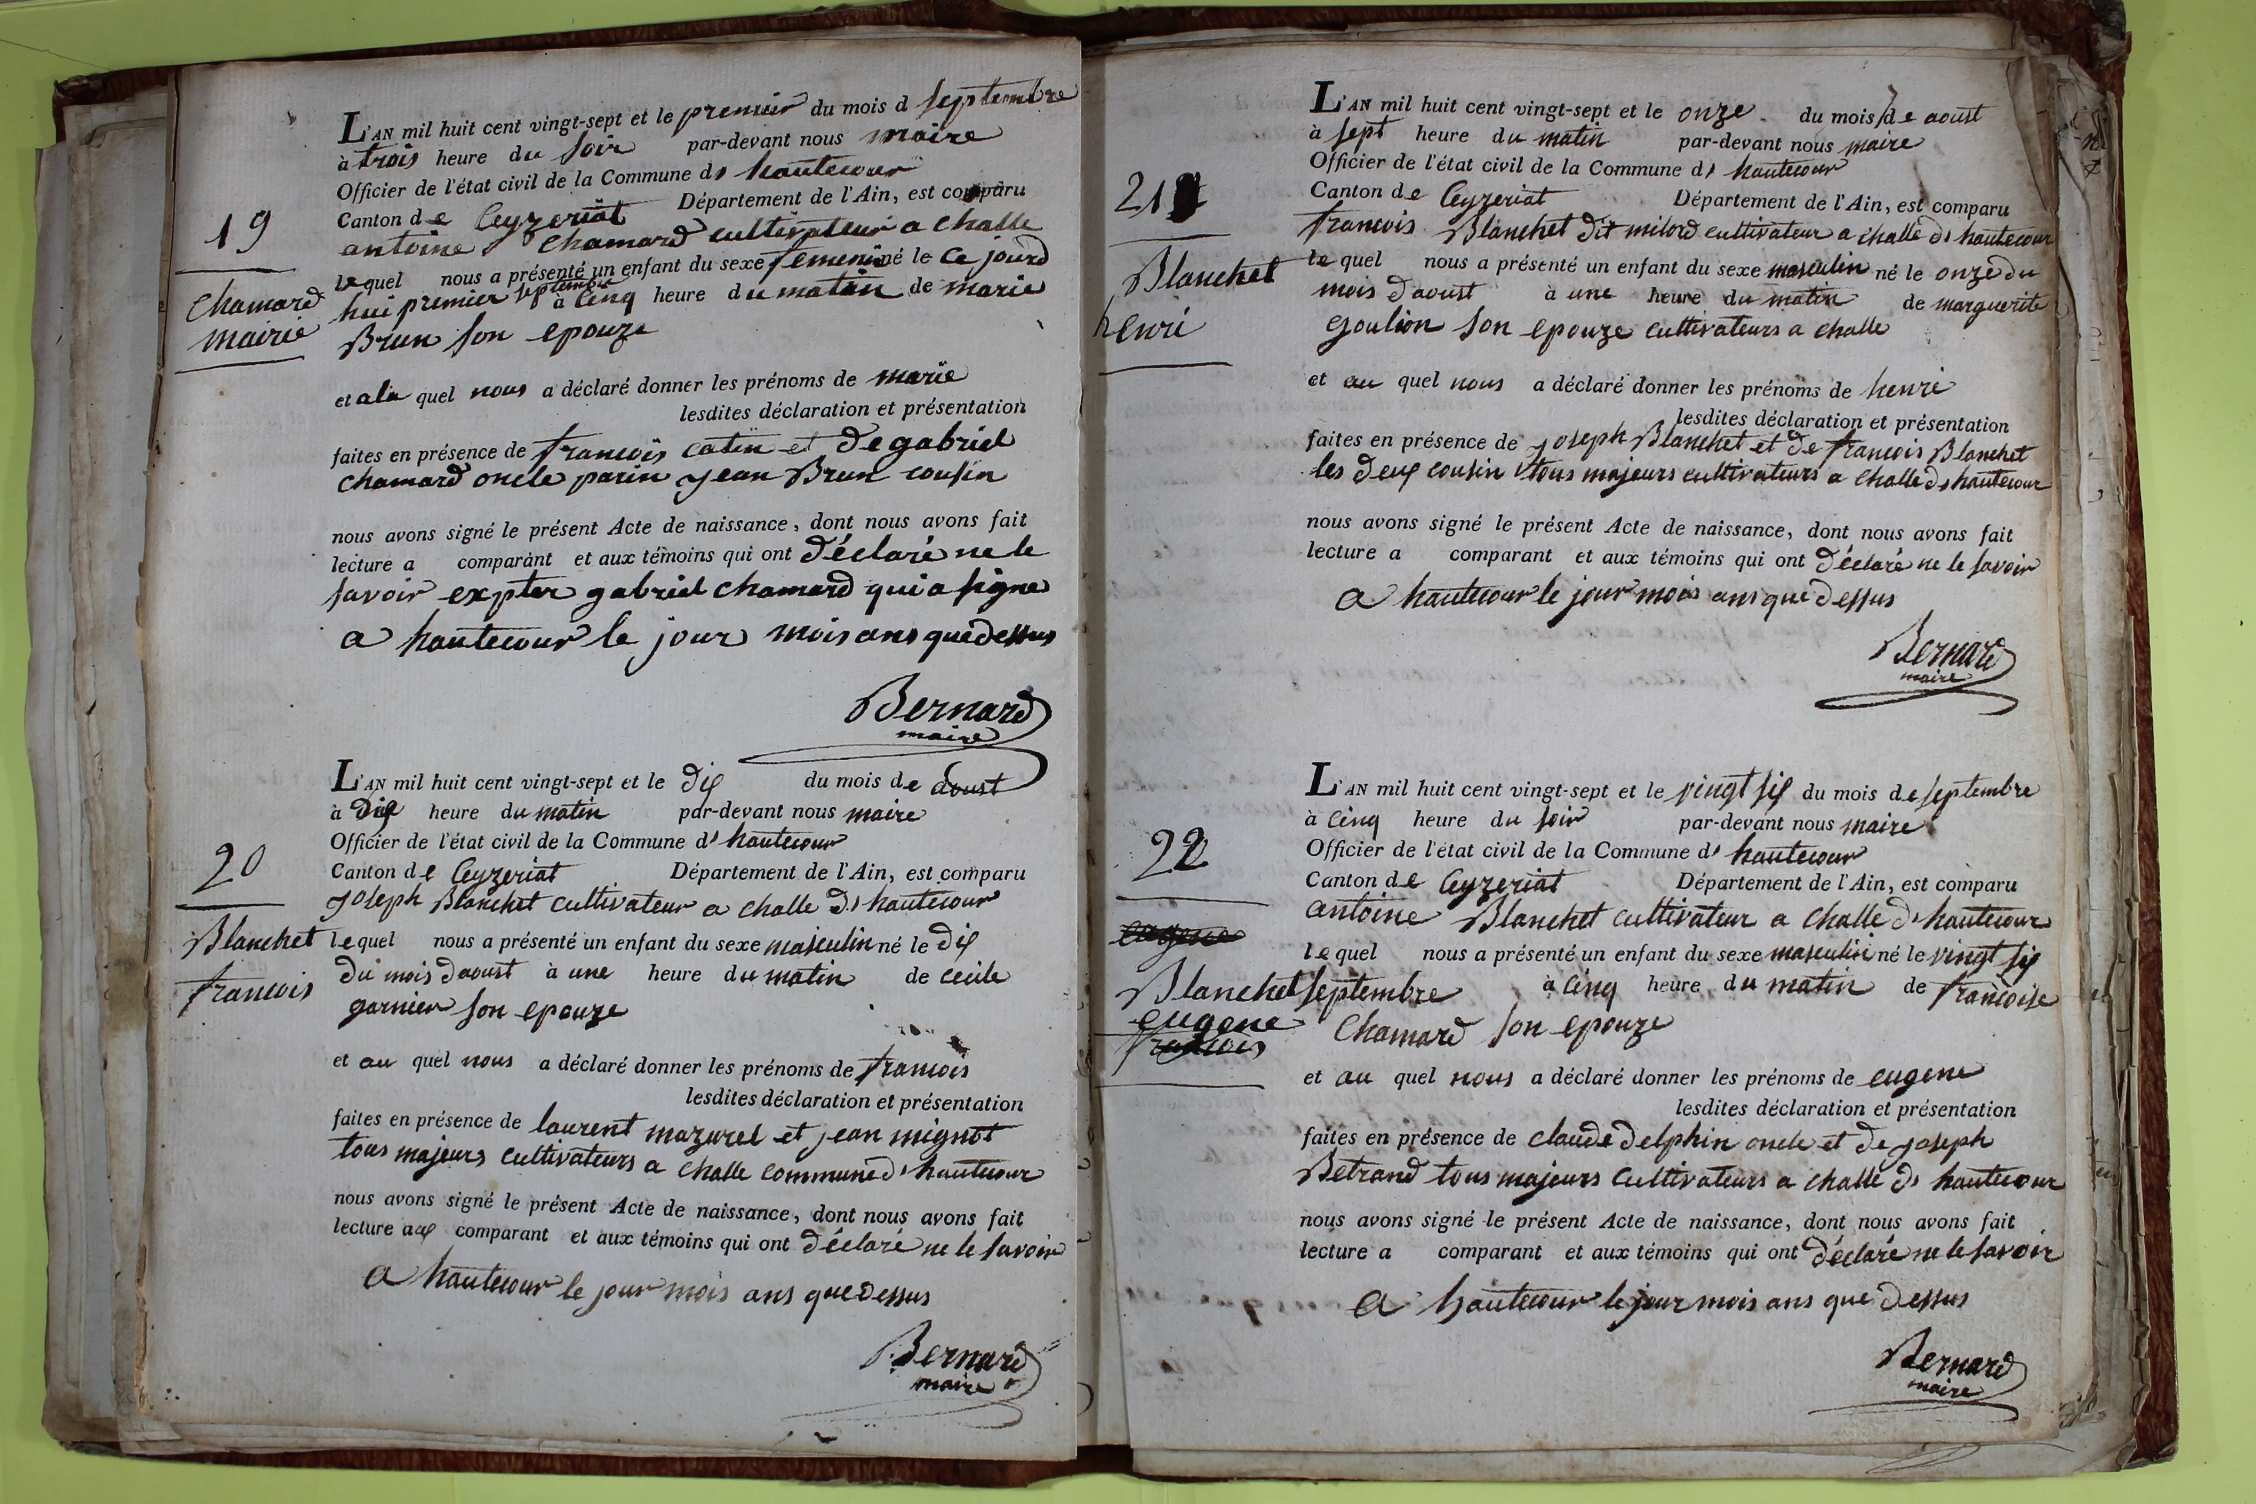 19
Chamard
mairie
L'AN mil huit cent vingt-sept et le premier du mois d septembre
à trois heure du soir par-devant nous maire
Officier de l'état civil de la Commune d' hautecour
Canton de Ceyzeriat Département de l'Ain, est comparu
antoine Chamard cultivateur a Challe
lequel nous a présenté un enfant du sexe femeninné le ce jourd
hui premier septembre à cinq heure du matin de marie
Brun son epouze
et ala quel nous a déclaré donner les prénoms de marie
lesdites déclaration et présentation
faites en présence de francois catin et de gabriel
chamard oncle parin jean Brun cousin
nous avons signé le présent Acte de naissance, dont nous avons fait
lecture a comparant et aux témoins qui ont déclaré ne le
savoir expter gabriel chamard qui a signe
a hautecour le jour mois ans que dessus
Bernard
maire
20
Blanchet
francois
L'AN mil huit cent vingt-sept et le dix du mois de aoust
à dix heure du matin par-devant nous maire
Officier de l'état civil de la Commune d' hautecour
Canton de Ceyzeriat Département de l'Ain, est comparu
joseph Blanchet cultivateur a challe d' hautecour
lequel nous a présenté un enfant du sexe masculin né le dix
du mois daoust à une heure du matin de cecile
garnier son epouze
et au quel nous a déclaré donner les prénoms de francois
lesdites déclaration et présentation
faites en présence de laurent mazurel et jean mignot
tous majeurs cultivateurs a challe commune d' hautecour
nous avons signé le présent Acte de naissance, dont nous avons fait
lecture aux comparant et aux témoins qui ont déclaré ne le savoir
a hautecour le jour mois ans que dessus
Bernard
maire
21
Blanchet
henri
L'AN mil huit cent vingt-sept et le onze du mois de aoust
à sept heure du matin par-devant nous maire
Officier de l'état civil de la Commune d' hautecour
Canton de Ceyzeriat Département de l'Ain, est comparu
francois Blanchet dit milord cultivateur a challe d' hautecour
lequel nous a présenté un enfant du sexe masculin né le onze du
mois daoust à une heure du matin de marguerite
goulion son epouze cultivateurs a challe
et au quel nous a déclaré donner les prénoms de henri
lesdites déclaration et présentation
faites en présence de joseph Blanchet et de francois Blanchet
les deux cousin tous majeurs cultivateurs a challe d' hautecour
nous avons signé le présent Acte de naissance, dont nous avons fait
lecture a comparant et aux témoins qui ont déclaré ne le savoir
a hautecour le jour mois ans que dessus
Bernard
maire
22
eugene
Blanchet
eugene
francois
L'AN mil huit cent vingt-sept et le vingt six du mois de septembre
à cinq heure du soir par-devant nous maire
Officier de l'état civil de la Commune d' hautecour
Canton de Ceyzeriat Département de l'Ain, est comparu
antoine Blanchet cultivateur a challe d' hautecour
lequel nous a présenté un enfant du sexe masculin né le vingt six
septembre à cinq heure du matin de francoise
Chamard son epouze
et au quel nous a déclaré donner les prénoms de eugene
lesdites déclaration et présentation
faites en présence de claude delphin oncle et de joseph
Betrand tous majeurs cultivateurs a challe d' hautecour
nous avons signé le présent Acte de naissance, dont nous avons fait
lecture a comparant et aux témoins qui ont déclaré ne le savoir
a hautecour le jour mois ans que dessus
Bernard
maire